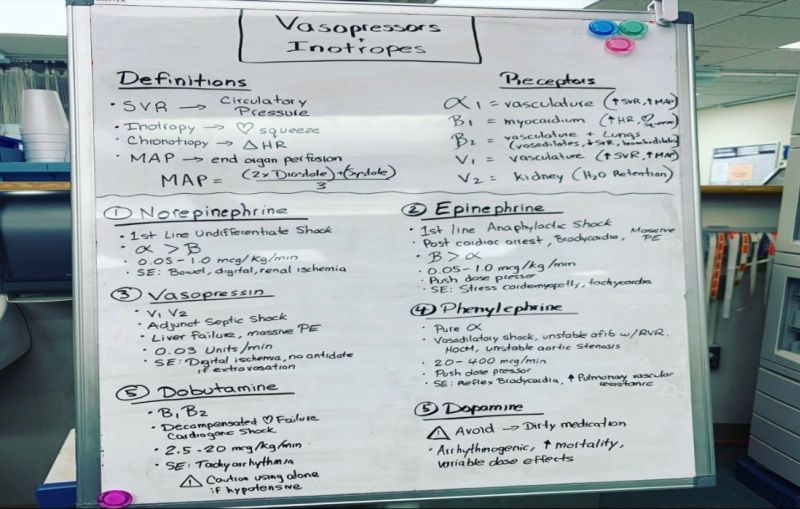 Vasopressors
+
Inotropes
Definitions
• SVR → Circulatory
Pressure
• Inotropy → ♡ squeeze
• Chronotropy → △ HR
• MAP → end organ perfusion
MAP = (2x Diastole)+(Systole)
3
Receptors
α1 = vasculature (↑SVR, ↑MAP)
B1 = myocardium (↑HR, ♡ Squeeze)
B2 = vasculature + Lungs
(vasodilates, ↓SVR, bronchodilates)
V1 = vasculature (↑SVR, ↑MAP)
V2 = kidney (H2O Retention)
① Norepinephrine
• 1st Line Undifferentiate Shock
• α > B
• 0.05 - 1.0 mcg/kg/min
• SE: Bowel, digital, renal ischemia
② Epinephrine
• 1st line Anaphylactic Shock
• Post cardiac arrest, Bradycardia, Massive
PE
• B > α
• 0.05 - 1.0 mcg/kg/min
• Push dose pressor
• SE: Stress cardiomopathy, tachycardia
③ Vasopressin
• V1 V2
• Adjunct Septic Shock
• Liver failure, massive PE
• 0.03 Units/min
• SE: Digital ischemia, no antidate
if extravasation
④ Phenylephrine
• Pure α
• Vasodilatory shock, unstable afib w/RVR.
HOCM, unstable aortic Stenosis
• 20 - 400 mcg/min
• Push dose pressor
• SE: Reflex Bradycardia, ↑ Pulmonary vascular
resistance
⑤ Dobutamine
• B1 B2
• Decompensated ♡ Failure
Cardiogenic Shock
• 2.5 - 20 mcg/kg/min
• SE: Tachyarrhythmia
⚠ Caution using alone
if hypotensive
⑤ Dopamine
⚠ Avoid → Dirty medication
• Arrhythmogenic, ↑ mortality,
variable dose effects